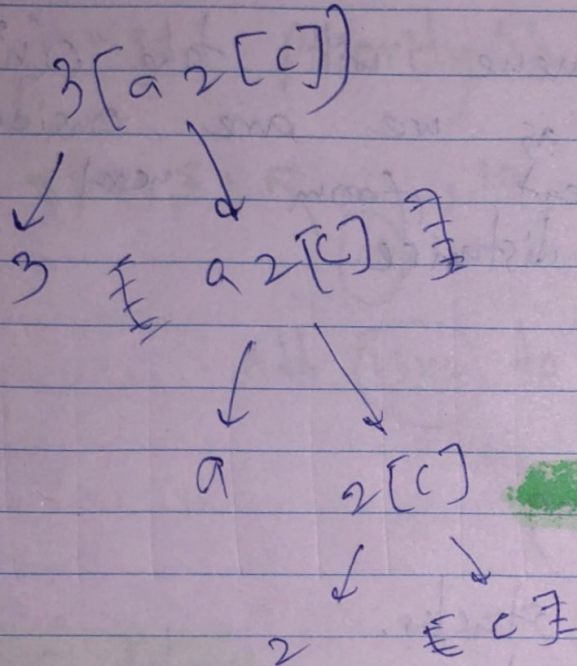 3[a2[c]]
3 [a2[c]]
a 2[c]
2 [c]